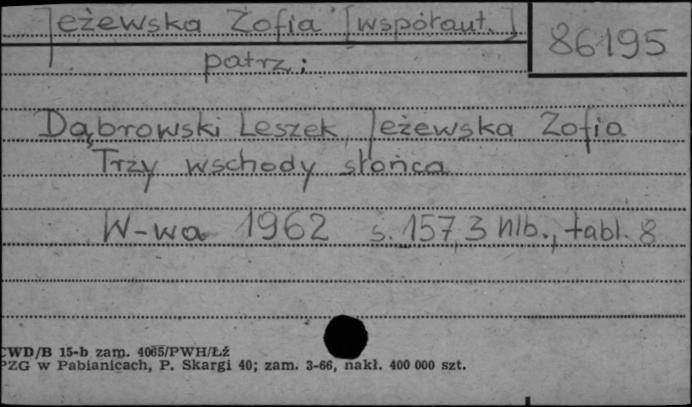 Jeżewska Zofia [współaut.]
86195
patrz:
Dąbrowski Leszek, Jeżewska Zofia
Trzy wschody słońca
W-wa 1962 s. 157, 3 nlb., tabl. 8
CWD/B 15-b zam. 4065/PWH/Łź
PZG w Pabianicach, P. Skargi 40; zam. 3-66, nakł. 400 000 szt.